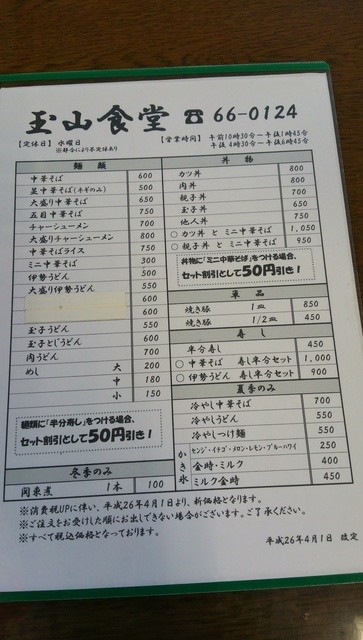 玉山食堂 ☎ 66-0124
【定休日】 水曜日
※都合により不定休あり
【営業時間】 午前10時30分～午後1時45分
午後 4時30分～午後6時45分
麺類
中華そば 600
並中華そば(ネギのみ) 500
大盛り中華そば 650
五目中華そば 750
チャーシューメン 700
大盛りチャーシューメン 800
中華そばライス 750
ミニ中華そば 300
伊勢うどん 500
大盛り伊勢うどん 550
600
600
玉子うどん 550
玉子とじうどん 600
肉うどん 700
めし 大 200
中 180
小 150
麺類に「半分寿し」をつける場合、
セット割引として50円引き!
冬季のみ
関東煮 1本 100
丼物
カツ丼 800
肉丼 800
親子丼 700
玉子丼 650
他人丼 750
○ カツ丼 と ミニ中華そば 1,050
○ 親子丼 と ミニ中華そば 950
丼物に「ミニ中華そば」をつける場合、
セット割引として50円引き!
単品
焼き豚 1皿 850
焼き豚 1/2皿 450
寿し
半分寿し 450
○ 中華そば 寿し半分セット 1,000
○ 伊勢うどん 寿し半分セット 900
夏季のみ
冷やし中華そば 700
冷やしうどん 550
冷やしつけ麺 550
かき氷
センジ・イチゴ・メロン・レモン・ブルーハワイ 250
金時・ミルク 400
ミルク金時 450
※消費税UPに伴い、平成26年4月1日より、新価格となります。
※ご注文をお受けした順にお出しできない場合がございます。ご了承ください。
※すべて税込価格となっております。
平成26年4月1日 改定